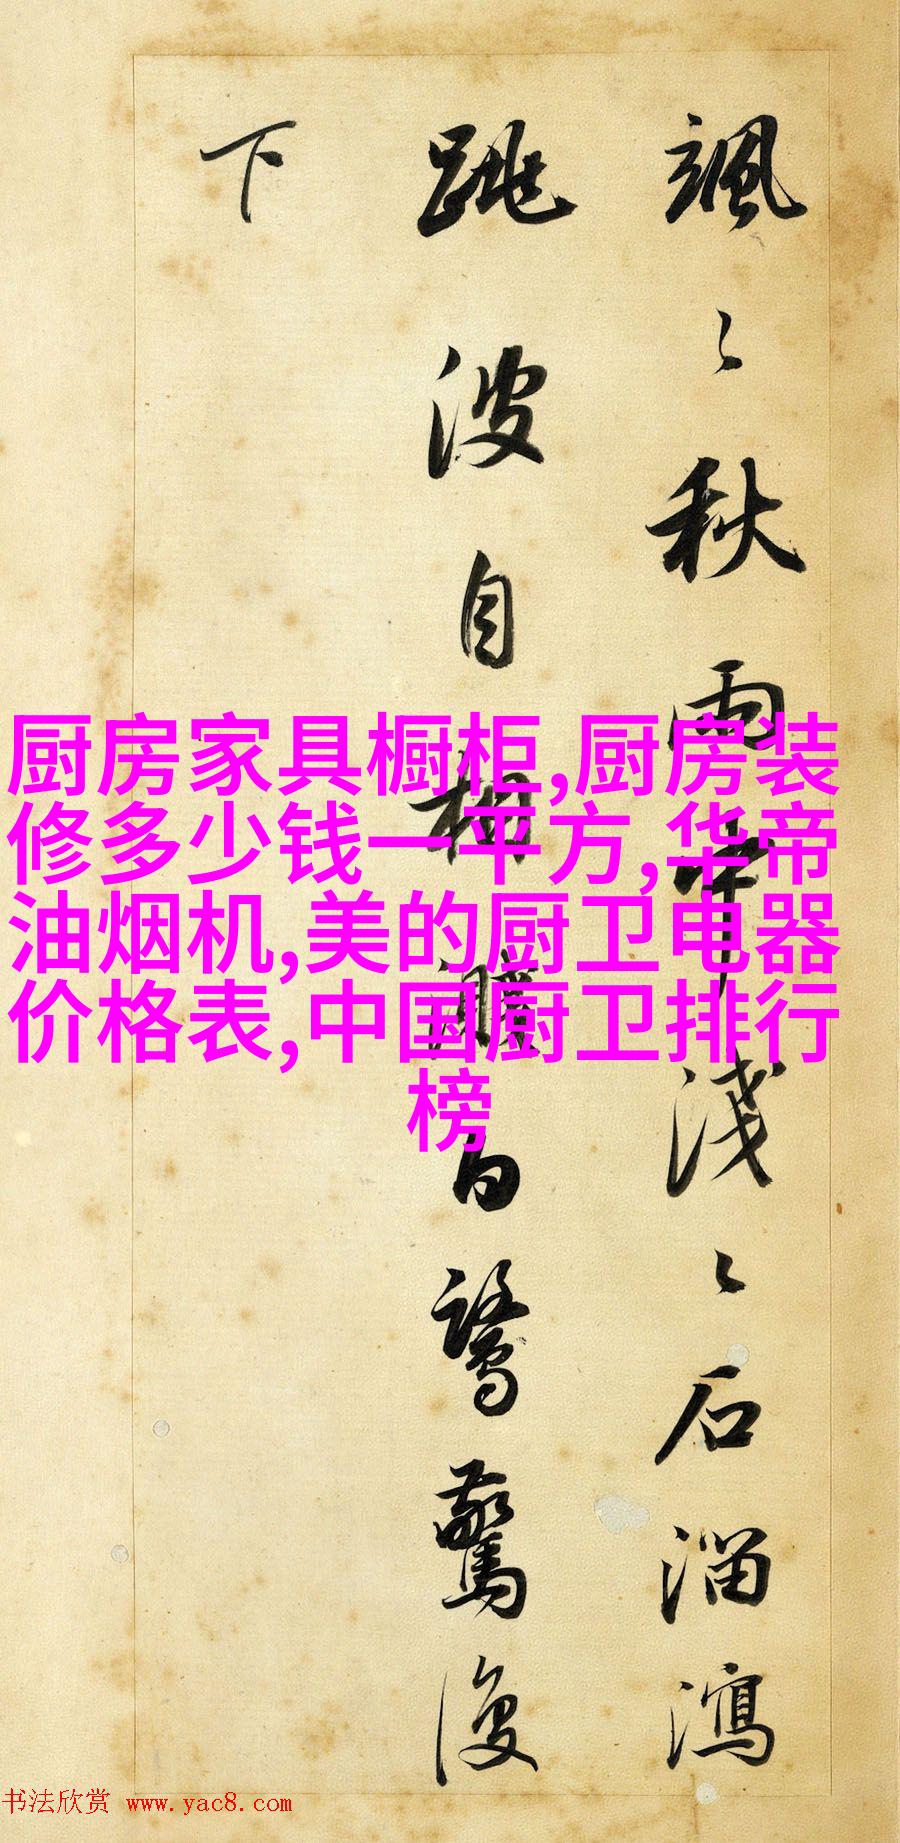 颯〻秋雨中淺〻石溜瀉
跳波自相濺白鷺驚復
下
厨房家具橱柜,厨房装
修多少钱一平方,华帝
油烟机,美的厨卫电器
价格表,中国厨卫排行
榜
书法欣赏 www.yac8.com